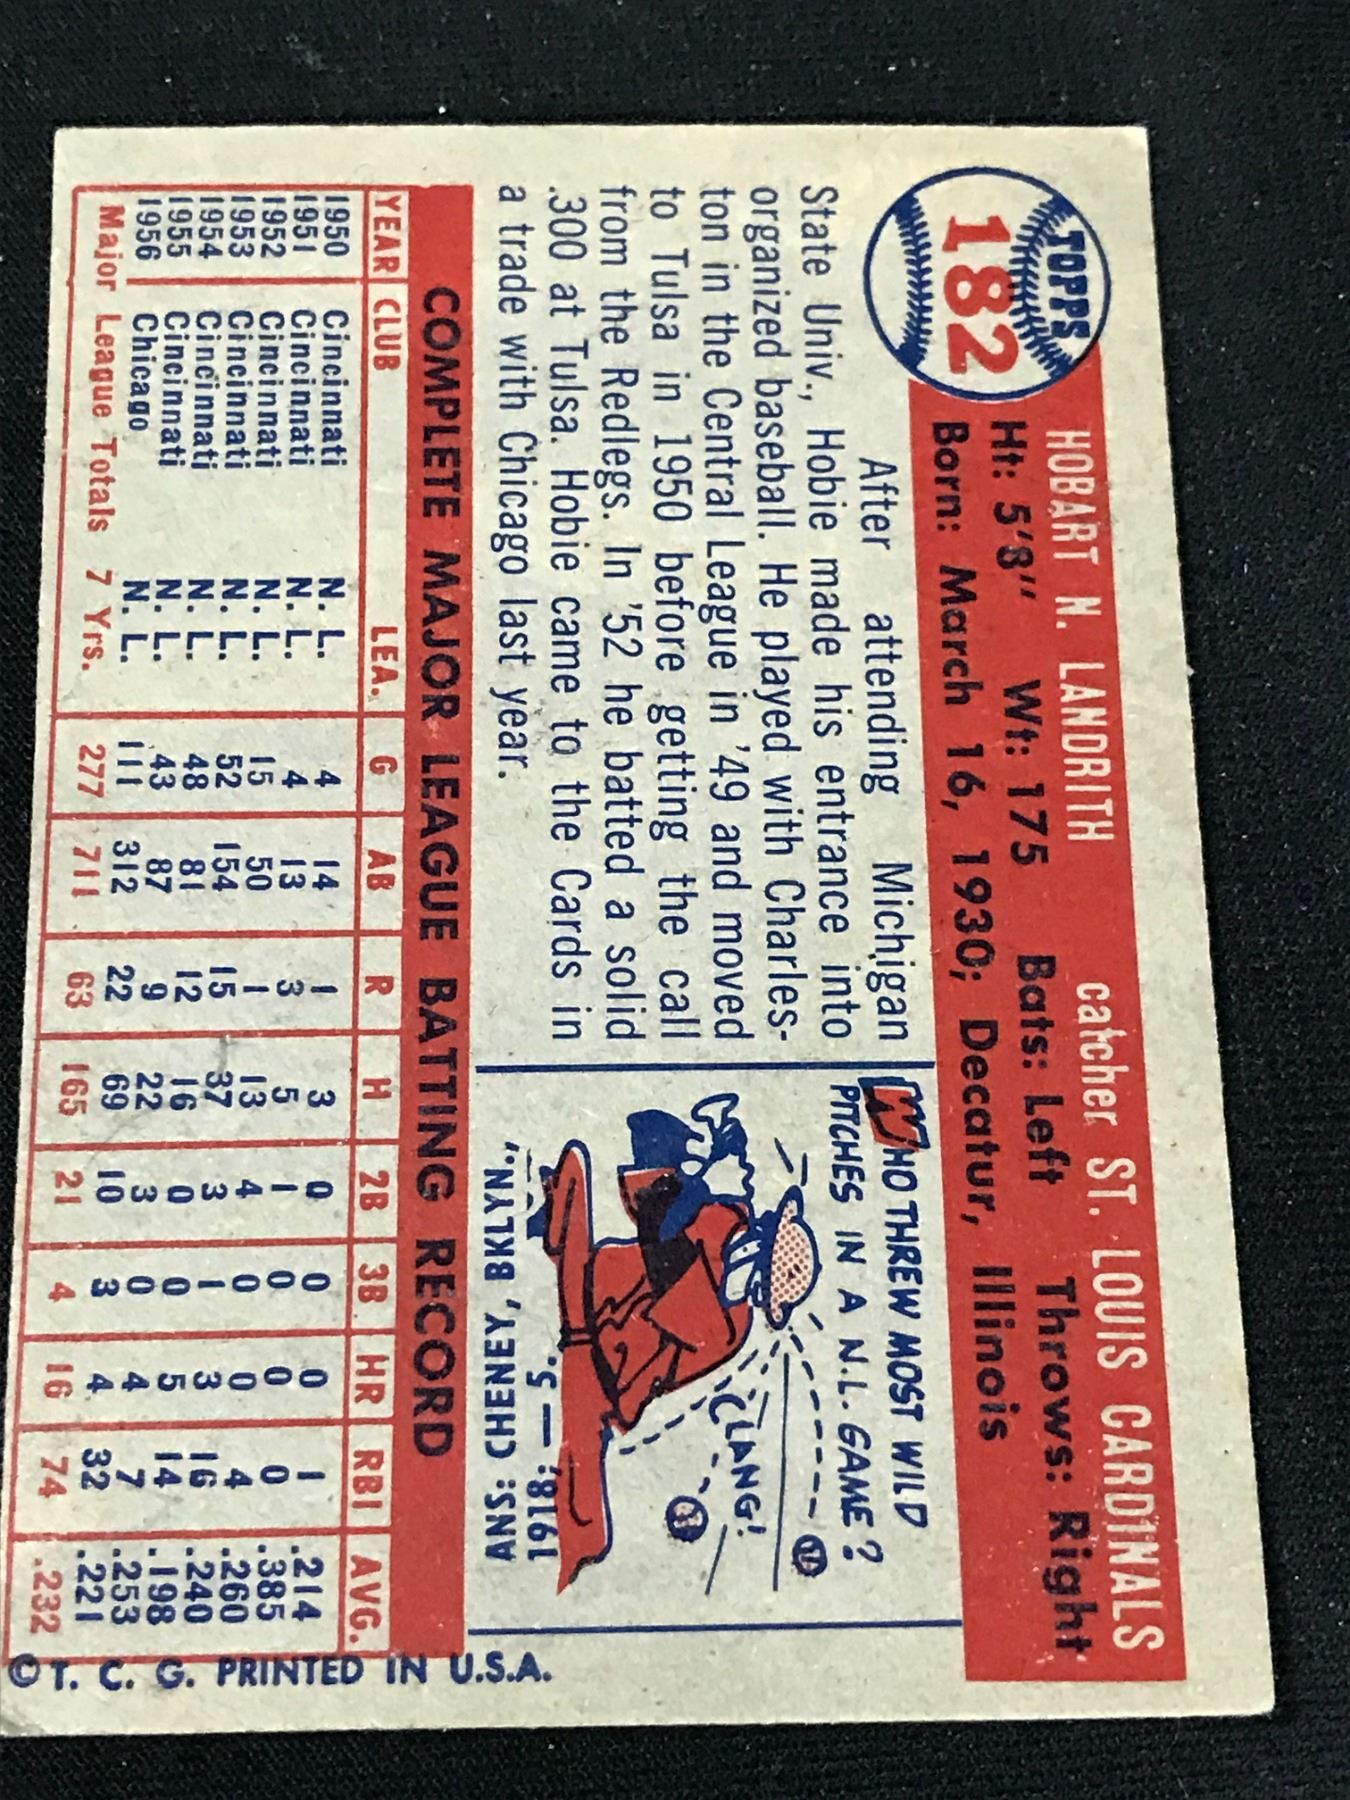 TOPPS
182
HOBART N. LANDRITH catcher ST. LOUIS CARDINALS
Ht: 5'8" Wt: 175 Bats: Left Throws: Right
Born: March 16, 1930; Decatur, Illinois
After attending Michigan
State Univ., Hobie made his entrance into
organized baseball. He played with Charles-
ton in the Central League in '49 and moved
to Tulsa in 1950 before getting the call
from the Redlegs. In '52 he batted a solid
.300 at Tulsa. Hobie came to the Cards in
a trade with Chicago last year.
WHO THREW MOST WILD
PITCHES IN A N.L. GAME?
CLANG!
ANS: CHENEY, BKLYN.,
1918; — 5.
COMPLETE MAJOR LEAGUE BATTING RECORD
YEAR CLUB LEA. G AB R H 2B 3B HR RBI AVG.
1950 Cincinnati N. L. 4 14 1 3 0 0 0 1 .214
1951 Cincinnati N. L. 4 13 3 5 1 0 0 0 .385
1952 Cincinnati N. L. 15 50 1 13 4 0 0 4 .260
1953 Cincinnati N. L. 52 154 15 37 3 1 3 16 .240
1954 Cincinnati N. L. 48 81 12 16 0 0 5 14 .198
1955 Cincinnati N. L. 43 87 9 22 3 0 4 7 .253
1956 Chicago N. L. 111 312 22 69 10 3 4 32 .221
Major League Totals 7 Yrs. 277 711 63 165 21 4 16 74 .232
© T. C. G. PRINTED IN U.S.A.